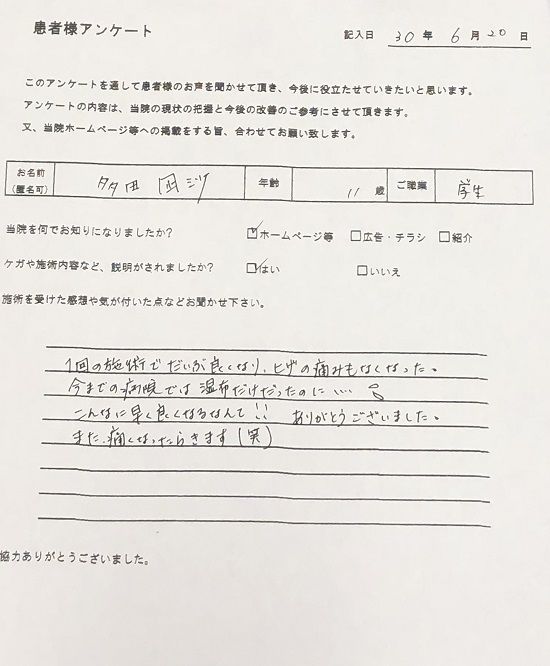 患者様アンケート
記入日 30 年 6 月 20 日
このアンケートを通して患者様のお声を聞かせて頂き、今後に役立たせていきたいと思います。
アンケートの内容は、当院の現状の把握と今後の改善のご参考にさせて頂きます。
又、当院ホームページ等への掲載をする旨、合わせてお願い致します。
お名前(匿名可) 多田 年齢 11 歳 ご職業 学生
当院を何でお知りになりましたか? ☑ホームページ等 □広告・チラシ □紹介
ケガや施術内容など、説明がされましたか? ☑はい □いいえ
施術を受けた感想や気が付いた点などお聞かせ下さい。
1回の施術でだいぶ良くなり、ヒザの痛みもなくなった。
今までの病院では湿布だけだったのに....
こんなに早く良くなるなんて!! ありがとうございました。
また、痛くなったらきます(笑)
協力ありがとうございました。